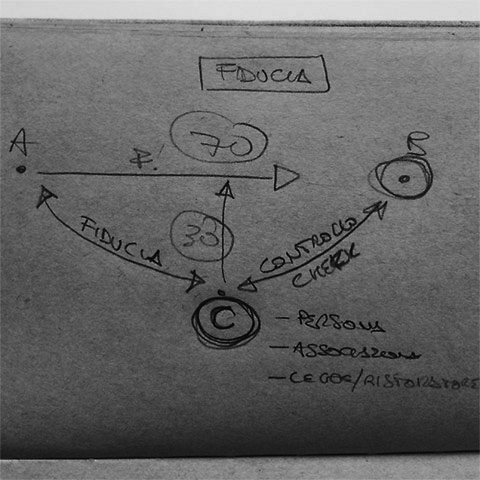 FIDUCIA
70
A
B
33
FIDUCIA
CONTROLLO
CHECK
C
- PERSONA
- ASSOCIAZIONE
/RISTORATORE